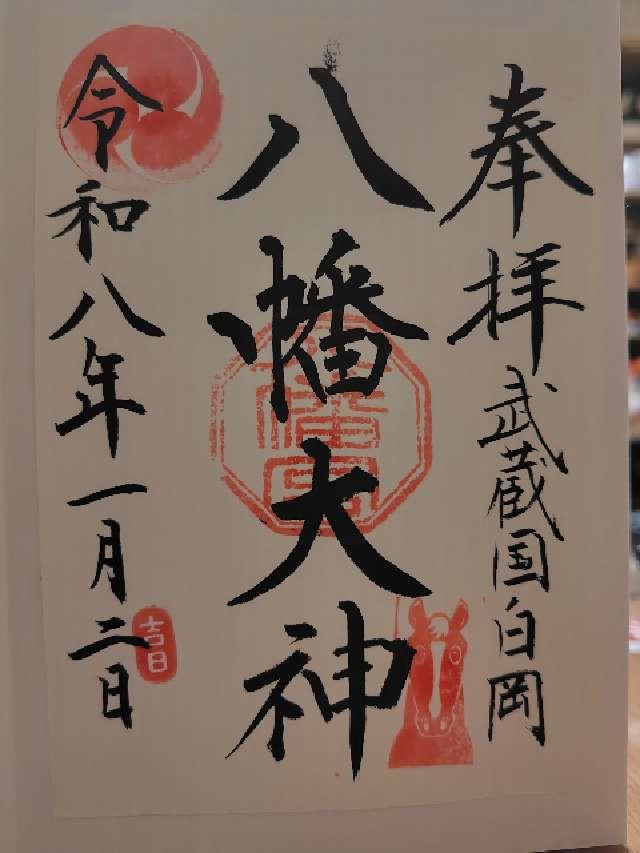 奉拝
武蔵国白岡
八幡大神
八幡宮
令和八年一月二日
吉日